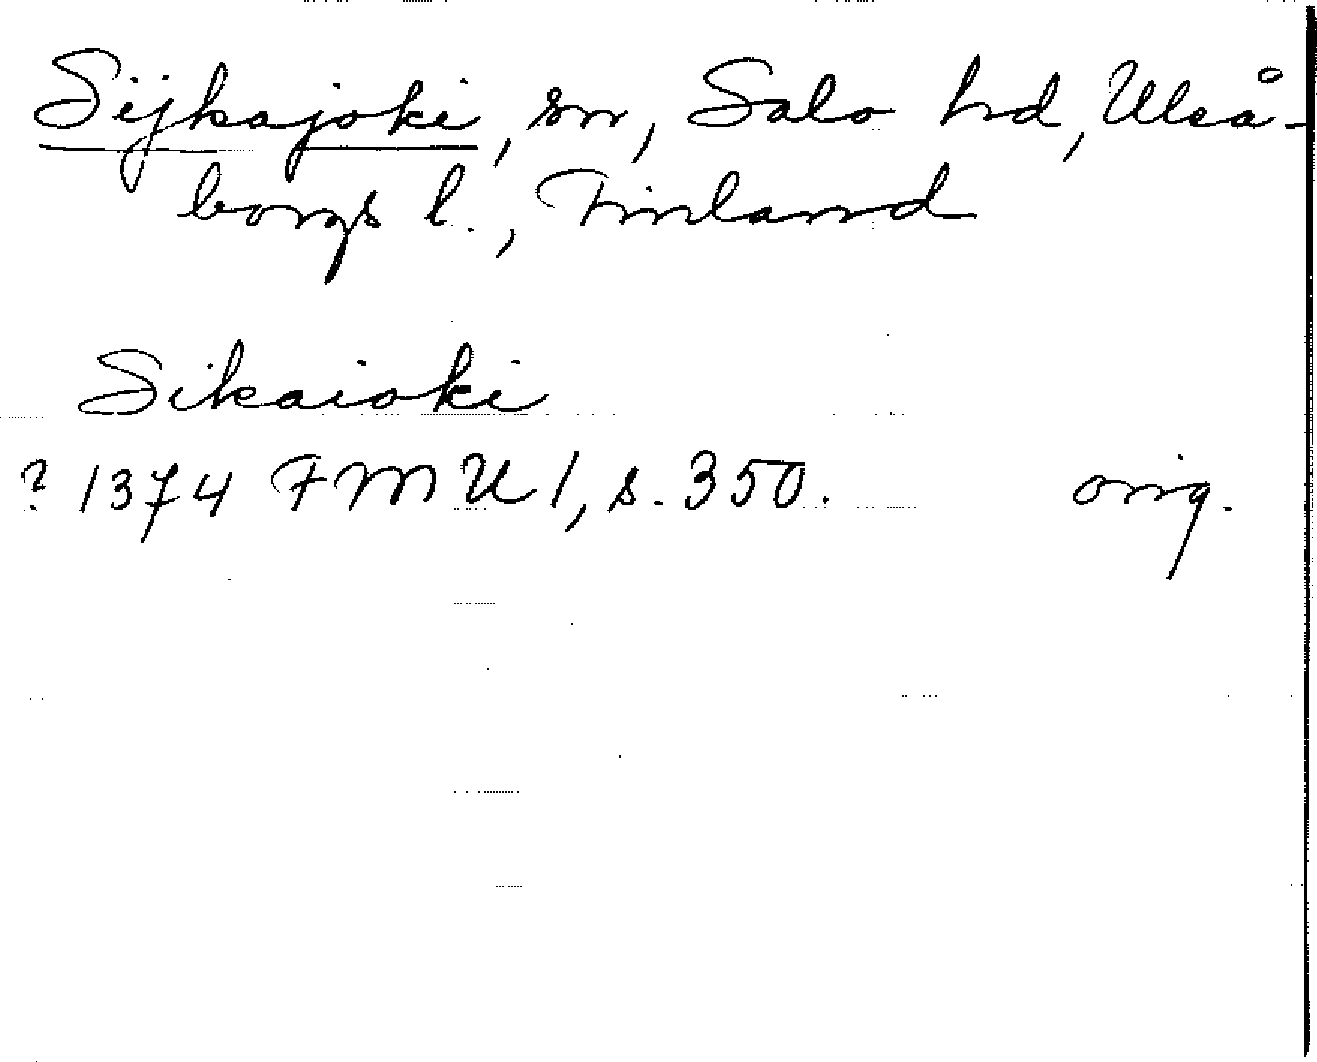 Sijkajoki, sn, Salo hd, Uleå-
borgs l., Finland
Sikaioki
? 1374 FMU 1, s. 350. orig.